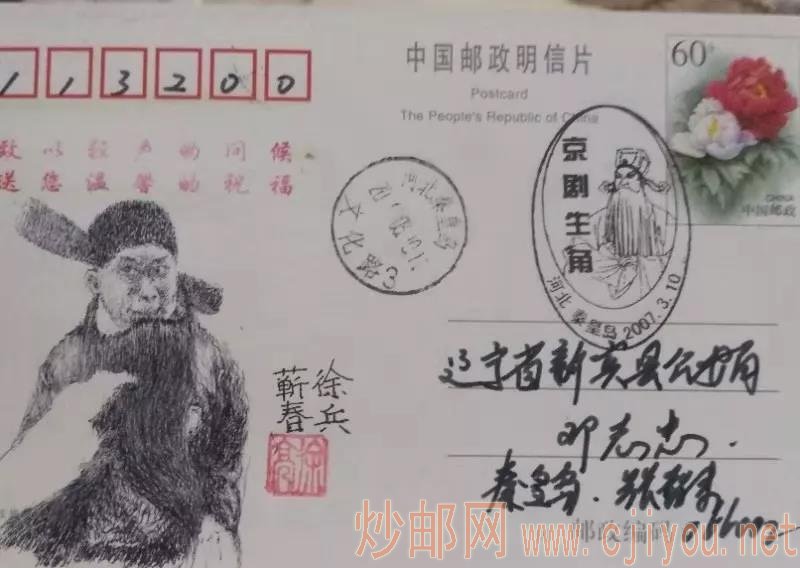 113200
中国邮政明信片
Postcard
The People's Republic of China
60
CHINA
中国邮政
致以轻声的问候
送您温馨的祝福
京剧生角
河北 秦皇岛 2007.3.10
河北秦皇岛
辽宁省新宾县公安局
邓志忠.
秦皇岛.张
徐兵
蕲春
邮政编码
炒邮网 www.cjiyou.net